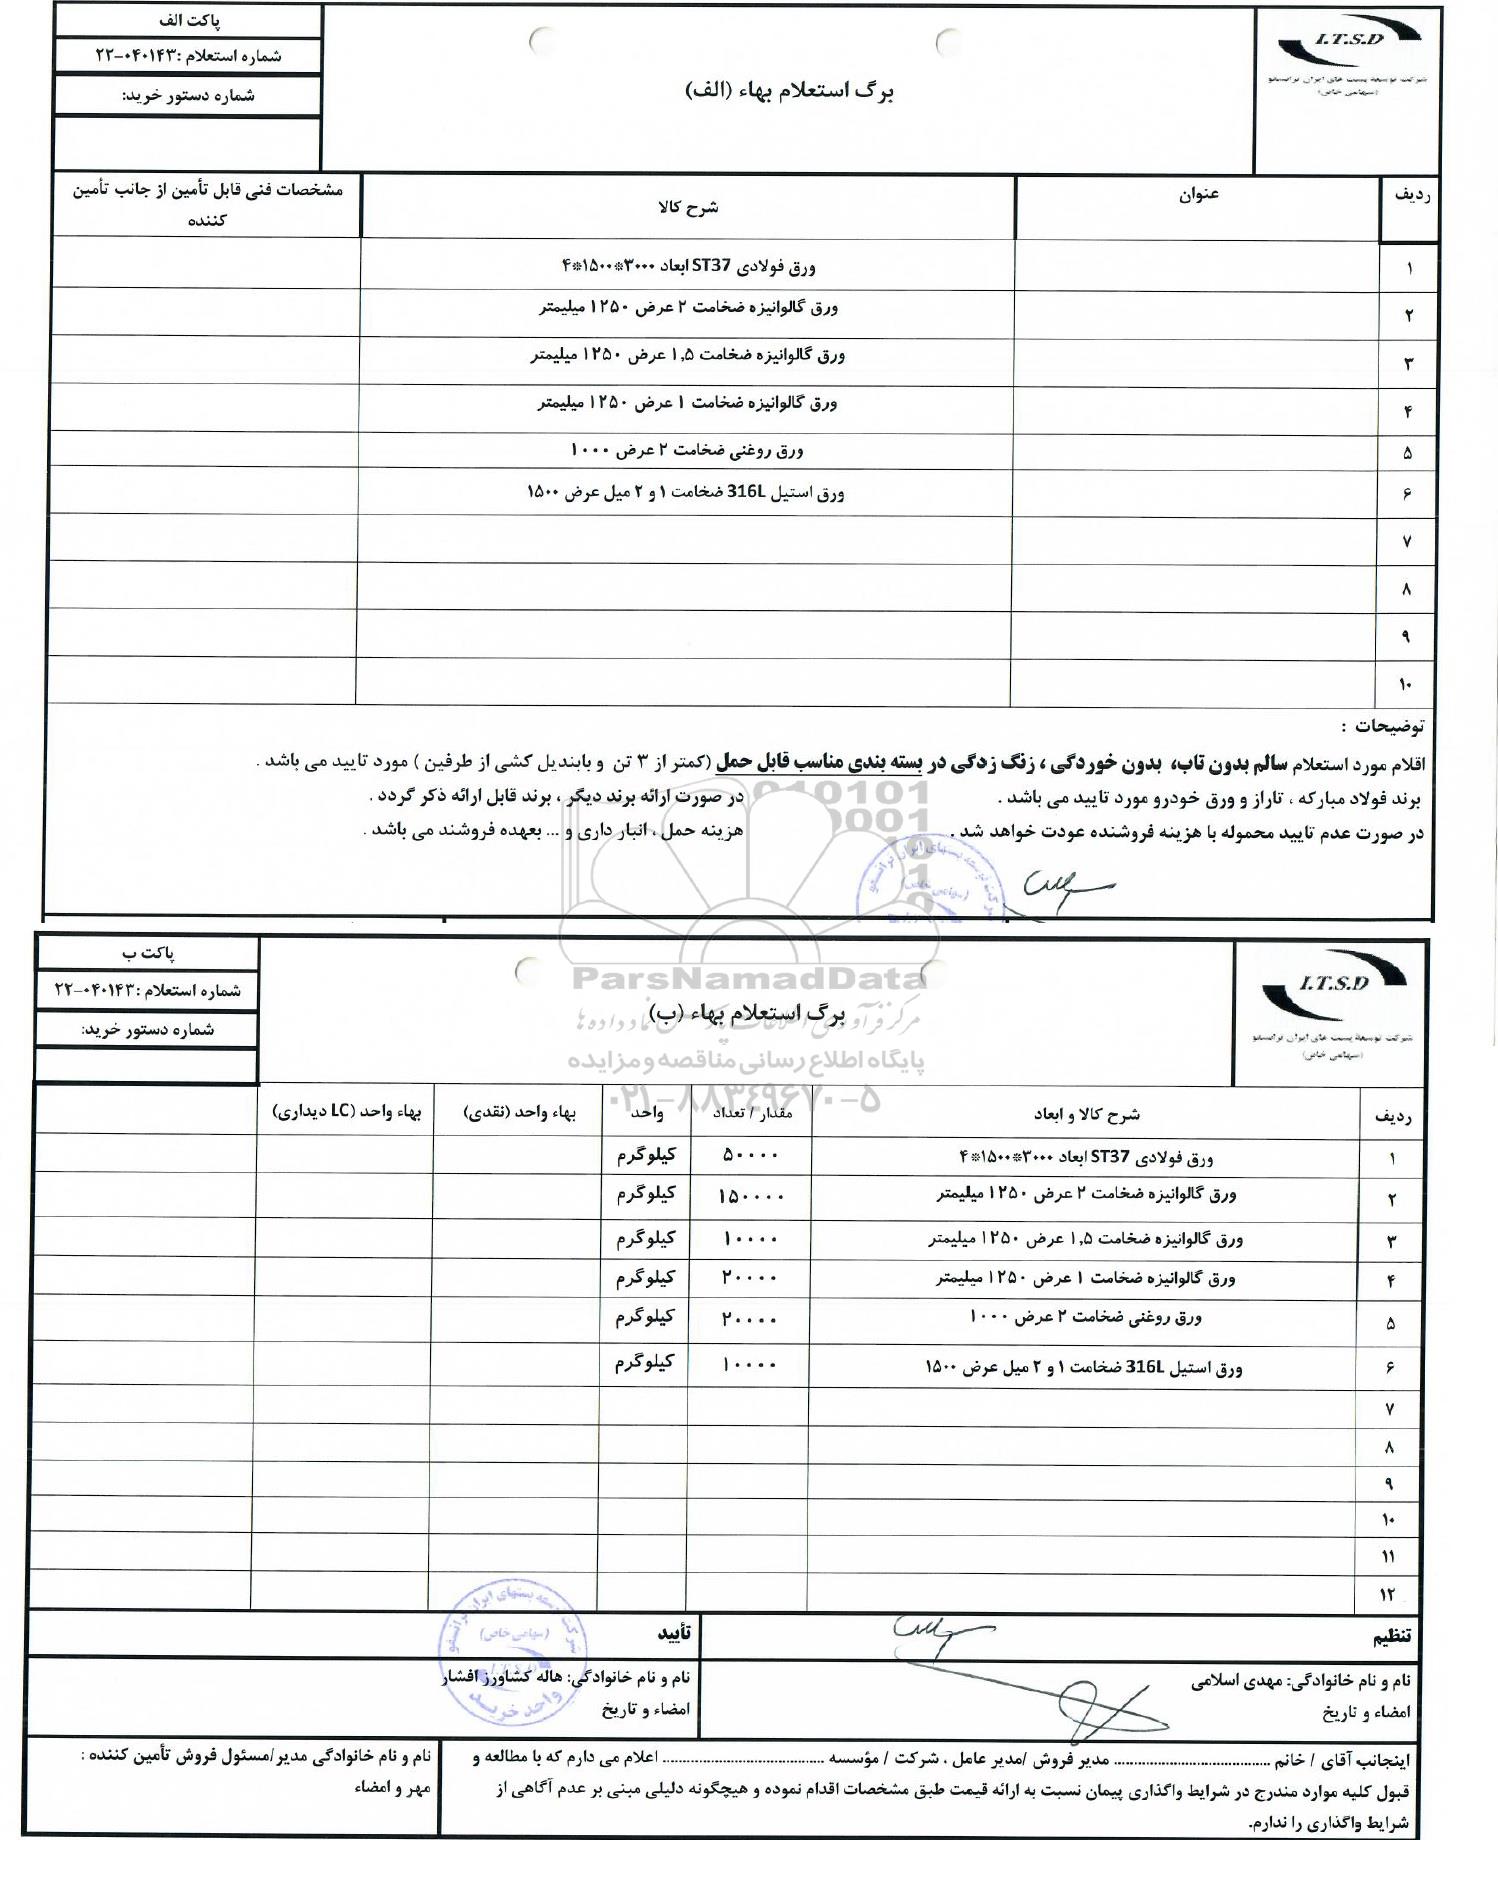 پاکت الف
شماره استعلام :۰۴۰۱۴۳-۲۲
شماره دستور خرید:
برگ استعلام بهاء (الف)
I.T.S.D
شرکت توسعه پست های ایران ترانسفو
(سهامی خاص)
ردیف عنوان شرح کالا مشخصات فنی قابل تأمین از جانب تأمین کننده
۱ ورق فولادی ST37 ابعاد ۳۰۰۰*۱۵۰۰*۴
۲ ورق گالوانیزه ضخامت ۲ عرض ۱۲۵۰ میلیمتر
۳ ورق گالوانیزه ضخامت ۱,۵ عرض ۱۲۵۰ میلیمتر
۴ ورق گالوانیزه ضخامت ۱ عرض ۱۲۵۰ میلیمتر
۵ ورق روغنی ضخامت ۲ عرض ۱۰۰۰
۶ ورق استیل 316L ضخامت ۱ و ۲ میل عرض ۱۵۰۰
۷
۸
۹
۱۰
توضیحات :
اقلام مورد استعلام سالم بدون تاب، بدون خوردگی ، زنگ زدگی در بسته بندی مناسب قابل حمل (کمتر از ۳ تن و بابندیل کشی از طرفین ) مورد تایید می باشد .
برند فولاد مبارکه ، تاراز و ورق خودرو مورد تایید می باشد . در صورت ارائه برند دیگر ، برند قابل ارائه ذکر گردد .
در صورت عدم تایید محموله با هزینه فروشنده عودت خواهد شد . هزینه حمل ، انبار داری و ... بعهده فروشند می باشد .
شرکت توسعه پستهای ایران ترانسفو
(سهامی خاص)
ParsNamadData
مرکز فرآوری اطلاعات پارس نماد داده ها
پایگاه اطلاع رسانی مناقصه و مزایده
۰۲۱-۸۸۳۴۹۶۷۰-۵
پاکت ب
شماره استعلام :۰۴۰۱۴۳-۲۲
شماره دستور خرید:
برگ استعلام بهاء (ب)
I.T.S.D
شرکت توسعه پست های ایران ترانسفو
(سهامی خاص)
ردیف شرح کالا و ابعاد مقدار / تعداد واحد بهاء واحد (نقدی) بهاء واحد (LC دیداری)
۱ ورق فولادی ST37 ابعاد ۳۰۰۰*۱۵۰۰*۴ ۵۰۰۰۰ کیلوگرم
۲ ورق گالوانیزه ضخامت ۲ عرض ۱۲۵۰ میلیمتر ۱۵۰۰۰۰ کیلوگرم
۳ ورق گالوانیزه ضخامت ۱,۵ عرض ۱۲۵۰ میلیمتر ۱۰۰۰۰ کیلوگرم
۴ ورق گالوانیزه ضخامت ۱ عرض ۱۲۵۰ میلیمتر ۲۰۰۰۰ کیلوگرم
۵ ورق روغنی ضخامت ۲ عرض ۱۰۰۰ ۲۰۰۰۰ کیلوگرم
۶ ورق استیل 316L ضخامت ۱ و ۲ میل عرض ۱۵۰۰ ۱۰۰۰۰ کیلوگرم
۷
۸
۹
۱۰
۱۱
۱۲
تنظیم تأیید
نام و نام خانوادگی: مهدی اسلامی نام و نام خانوادگی: هاله کشاورز افشار
امضاء و تاریخ امضاء و تاریخ
شرکت توسعه پستهای ایران ترانسفو
(سهامی خاص)
I.T.S.D
واحد خرید
اینجانب آقای / خانم .................................... مدیر فروش /مدیر عامل ، شرکت / مؤسسه .................................... اعلام می دارم که با مطالعه و
قبول کلیه موارد مندرج در شرایط واگذاری پیمان نسبت به ارائه قیمت طبق مشخصات اقدام نموده و هیچگونه دلیلی مبنی بر عدم آگاهی از
شرایط واگذاری را ندارم.
نام و نام خانوادگی مدیر/مسئول فروش تأمین کننده :
مهر و امضاء